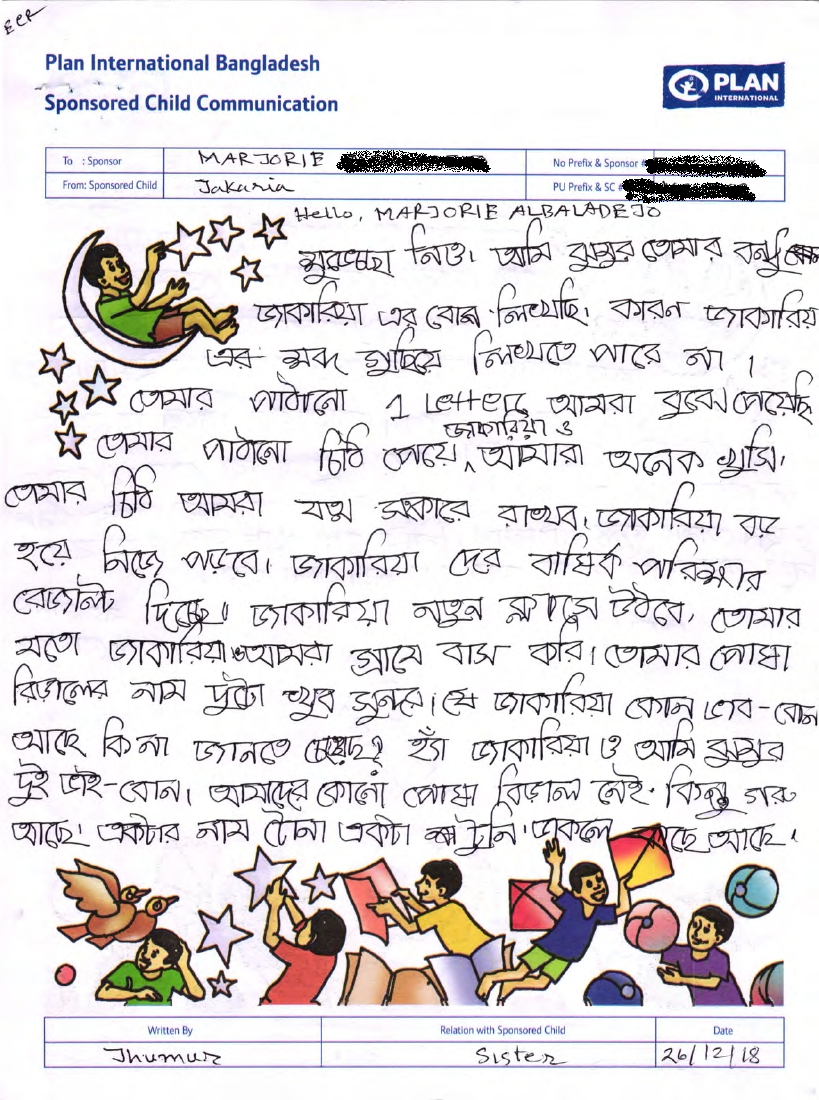 ECR
Plan International Bangladesh
Sponsored Child Communication
PLAN
INTERNATIONAL
To : Sponsor MARJORIE No Prefix & Sponsor #
From: Sponsored Child Jakaria PU Prefix & SC #
Hello, MARJORIE ALBALADEJO
নিও। আমি ঝুমুর তোমার বন্ধু
জাকারিয়া এর বোন লিখেছি। কারন জাকারিয়া
এর সব গুছিয়ে লিখতে পারে না।
তোমার পাঠানো 1 Letter আমরা বুঝে পেয়েছি
জাকারিয়া ও
তোমার পাঠানো চিঠি পেয়ে আমারা অনেক খুসি।
তোমার চিঠি আমরা যত্ন সকারে রাখব। জাকারিয়া বড়
হয়ে নিজে পড়বে। জাকারিয়া দের বার্ষিক পরিক্ষার
রেজাল্ট দিচ্ছে। জাকারিয়া নতুন ক্লাসে উঠবে। তোমার
মতো জাকারিয়া আমরা গ্রামে বাস করি। তোমার পোষা
বিড়ালের নাম দুটো খুব সুন্দর। যে জাকারিয়া কোন ভাব-বোন
আছে কি না জানতে চেয়েছ? হ্যাঁ জাকারিয়া ও আমি ঝুমুর
দুই ভাই-বোন। আমাদের কোনো পোষা বিড়াল নেই। কিন্তু গরু
আছে। একটার নাম টোনা একটা টুনি। আছে।
Written By Relation with Sponsored Child Date
Jhumur Sister 26/12/18